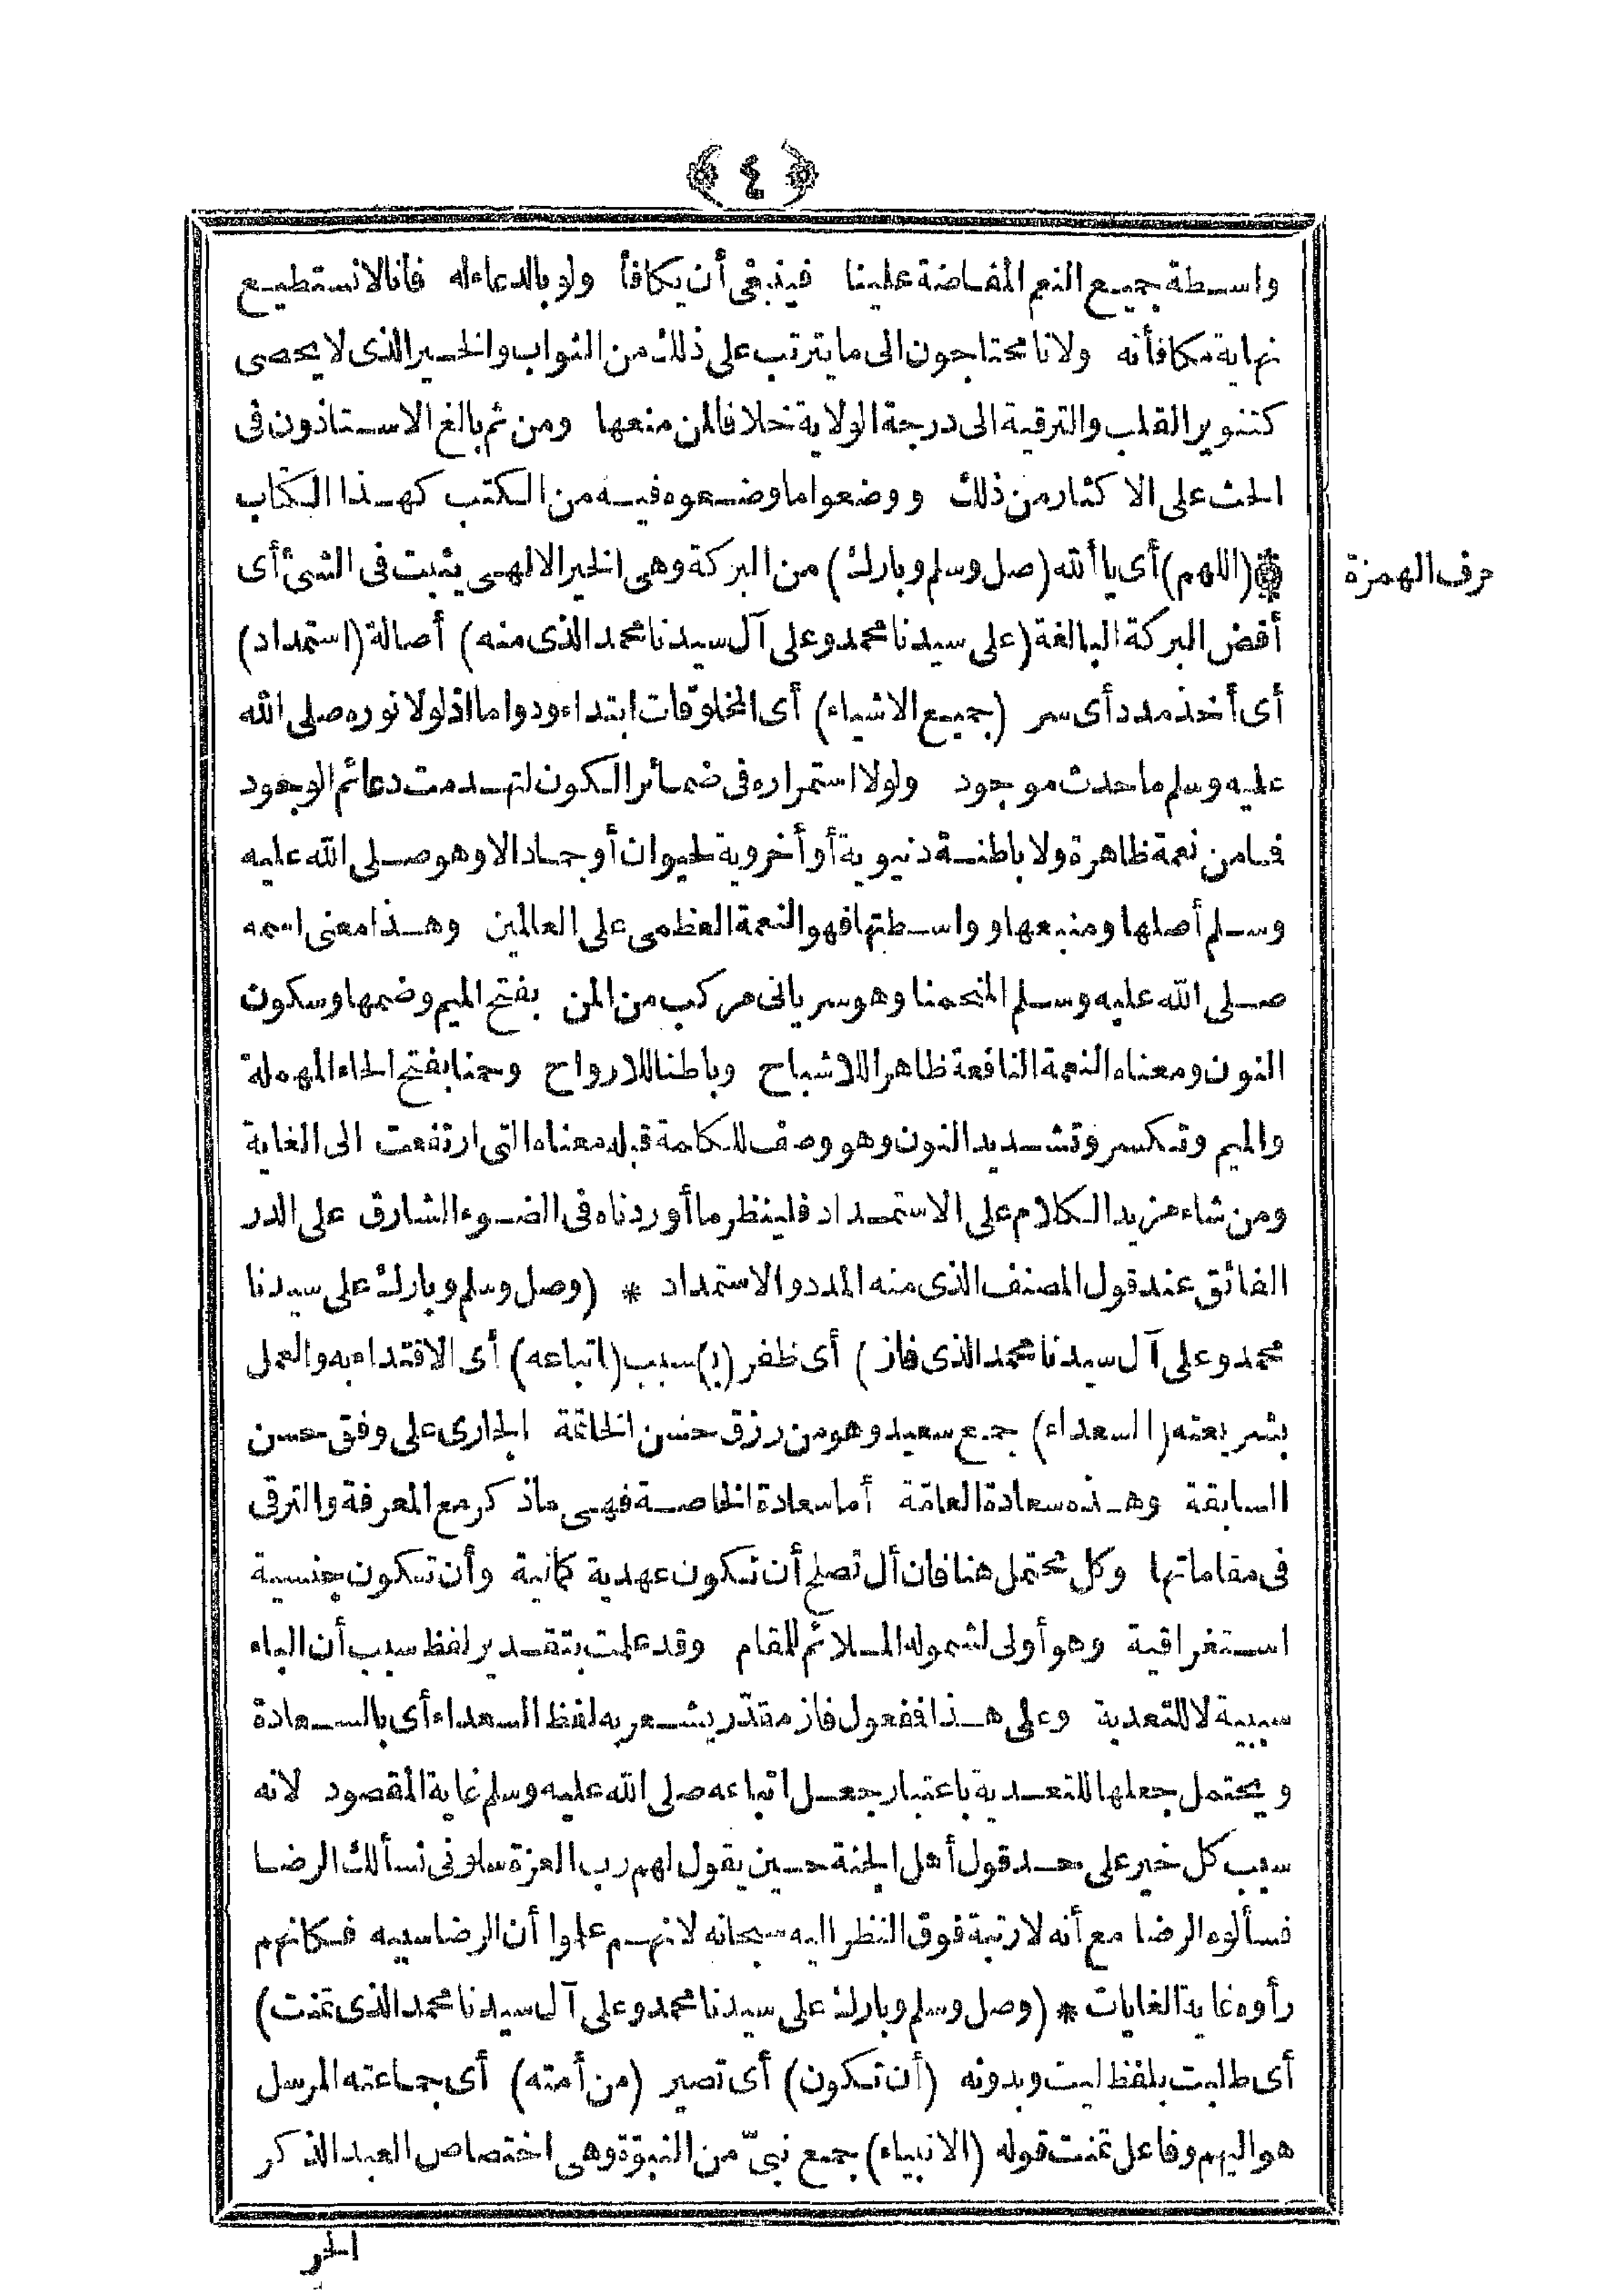 ﴿ ٤ ﴾
واسطة جميع النعم المفاضة علينا فينبغى أن يكافأ ولو بالدعاء له فانا لا نستطيع
نهاية مكافأته ولانا محتاجون الى ما يترتب على ذلك من الثواب والخير الذى لا يحصى
كتنوير القلب والترقية الى درجة الولاية خلافا لمن منعها ومن ثم بالغ الاستاذون فى
الحث على الاكثار من ذلك ووضعوا ما وضعوه فيه من الكتب كهذا الكتاب
حرف الهمزة
(اللهم) أى يا ألله (صل وسلم وبارك) من البركة وهى الخير الالهى يثبت فى الشئ أى
أفض البركة البالغة (على سيدنا محمد وعلى آل سيدنا محمد الذى منه) أصالة (استمداد)
أى أخذ مدد أى سر (جميع الاشياء) أى المخلوقات ابتداء ودواما اذ لولا نوره صلى الله
عليه وسلم ما حدث موجود ولولا استمراره فى ضمائر الكون لتهدمت دعائم الوجود
فما من نعمة ظاهرة ولا باطنة دنيوية أو أخروية لحيوان أو جماد الا وهو صلى الله عليه
وسلم أصلها ومنبعها وواسطتها فهو النعمة العظمى على العالمين وهذا معنى اسمه
صلى الله عليه وسلم المنحمنا وهو سريانى مركب من المن بفتح الميم وضمها وسكون
النون ومعناه النعمة النافعة ظاهرا للاشباح وباطنا للارواح وحمنا بفتح الحاء المهملة
والميم وتكسر وتشديد النون وهو وصف للكلمة قبله معناه التى ارتفعت الى الغاية
ومن شاء مزيد الكلام على الاستمداد فلينظر ما أوردناه فى الضوء الشارق على الدر
الفائق عند قول المصنف الذى منه المدد والاستمداد * (وصل وسلم وبارك على سيدنا
محمد وعلى آل سيدنا محمد الذى فاز) أى ظفر (ب) سبب (اتباعه) أى الاقتداء به والعمل
بشريعته (السعداء) جمع سعيد وهو من رزق حسن الخاتمة الجارى على وفق حسن
السابقة وهذه سعادة العامّة أما سعادة الخاصة فهى ماذكر مع المعرفة والترقى
فى مقاماتها وكل محتمل هنا فان أل تصلح أن تكون عهدية كمانية وأن تكون جنسية
استغراقية وهو أولى لشموله الملائم للمقام وقد علمت بتقدير لفظ سبب أن الباء
سببية لا للتعدية وعلى هذا فمفعول فاز مقدّر يشعر به لفظ السعداء أى بالسعادة
ويحتمل جعلها للتعدية باعتبار جعل اتباعه صلى الله عليه وسلم غاية المقصود لانه
سبب كل خير على حد قول أهل الجنة حين يقول لهم رب العزة سلونى نسألك الرضا
فسألوه الرضا مع أنه لا رتبة فوق النظر اليه سبحانه لانهم علموا أن الرضا سببه فكانهم
رأوه غاية الغايات * (وصل وسلم وبارك على سيدنا محمد وعلى آل سيدنا محمد الذى تمنت)
أى طلبت بلفظ ليت وبدونه (أن تكون) أى تصير (من أمته) أى جماعته المرسل
هو اليهم وفاعل تمنت قوله (الانبياء) جمع نبىّ من النبوّة وهى اختصاص العبد الذكر
الحر